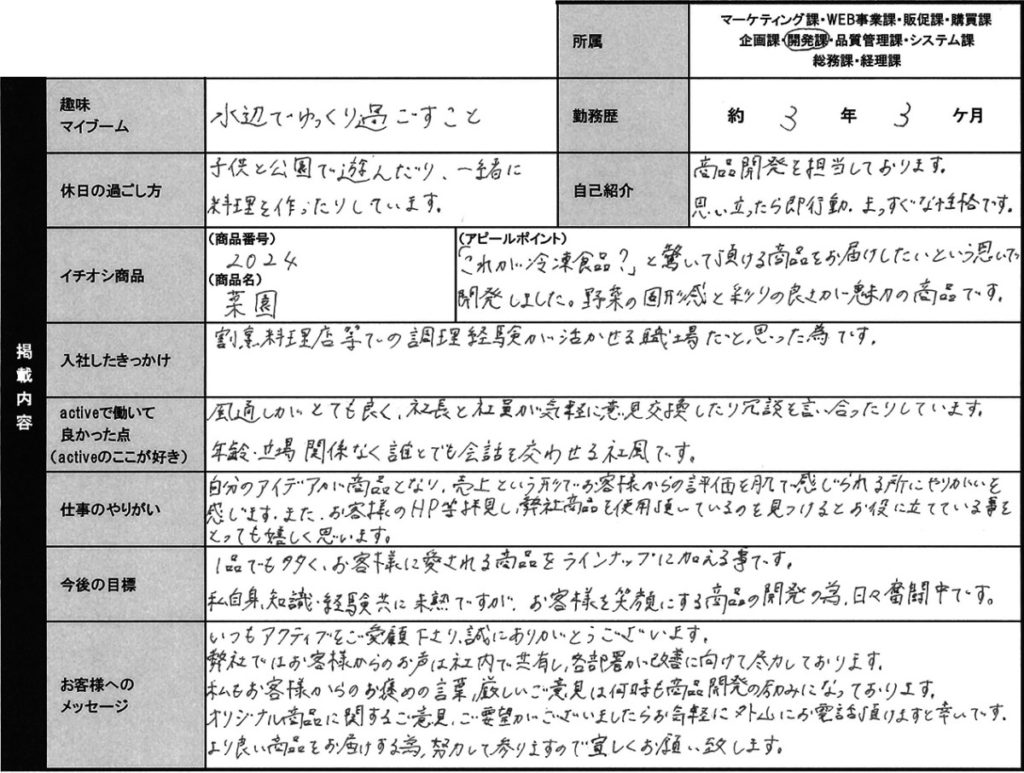 所属
マーケティング課・WEB事業課・販促課・購買課
企画課・開発課・品質管理課・システム課
総務課・経理課
掲載内容
趣味
マイブーム
水辺でゆっくり過ごすこと
勤務歴
約 3 年 3 ケ月
休日の過ごし方
子供と公園で遊んだり、一緒に
料理を作ったりしています。
自己紹介
商品開発を担当しております。
思い立ったら即行動、まっすぐな性格です。
イチオシ商品
(商品番号)
2024
(商品名)
菜園
(アピールポイント)
「これが冷凍食品?」と驚いて頂ける商品をお届けしたいという思いで
開発しました。野菜の固形感と彩りの良さが魅力の商品です。
入社したきっかけ
割烹料理店等での調理経験が活かせる職場だと思った為です。
activeで働いて
良かった点
(activeのここが好き)
風通しがとても良く、社長と社員が気軽に意見交換したり冗談を言い合ったりしています。
年齢・立場関係なく誰とでも会話を交わせる社風です。
仕事のやりがい
自分のアイデアが商品となり、売上という形でお客様からの評価を肌で感じられる所にやりがいを
感じます。また、お客様のHP等拝見し、弊社商品を使用頂いているのを見つけるとお役に立てている事を
とっても嬉しく思います。
今後の目標
1品でも多く、お客様に愛される商品をラインナップに加える事です。
私自身、知識・経験共に未熟ですが、お客様を笑顔にする商品の開発の為、日々奮闘中です。
お客様への
メッセージ
いつもアクティブをご愛顧下さり、誠にありがとうございます。
弊社ではお客様からのお声は社内で共有し、各部署が改善に向けて尽力しております。
私もお客様からのお褒めの言葉、厳しいご意見は何時も商品開発の励みになっております。
オリジナル商品に関するご意見、ご要望がございましたらお気軽に外山にお電話頂けますと幸いです。
より良い商品をお届けする為、努力して参りますので宜しくお願い致します。